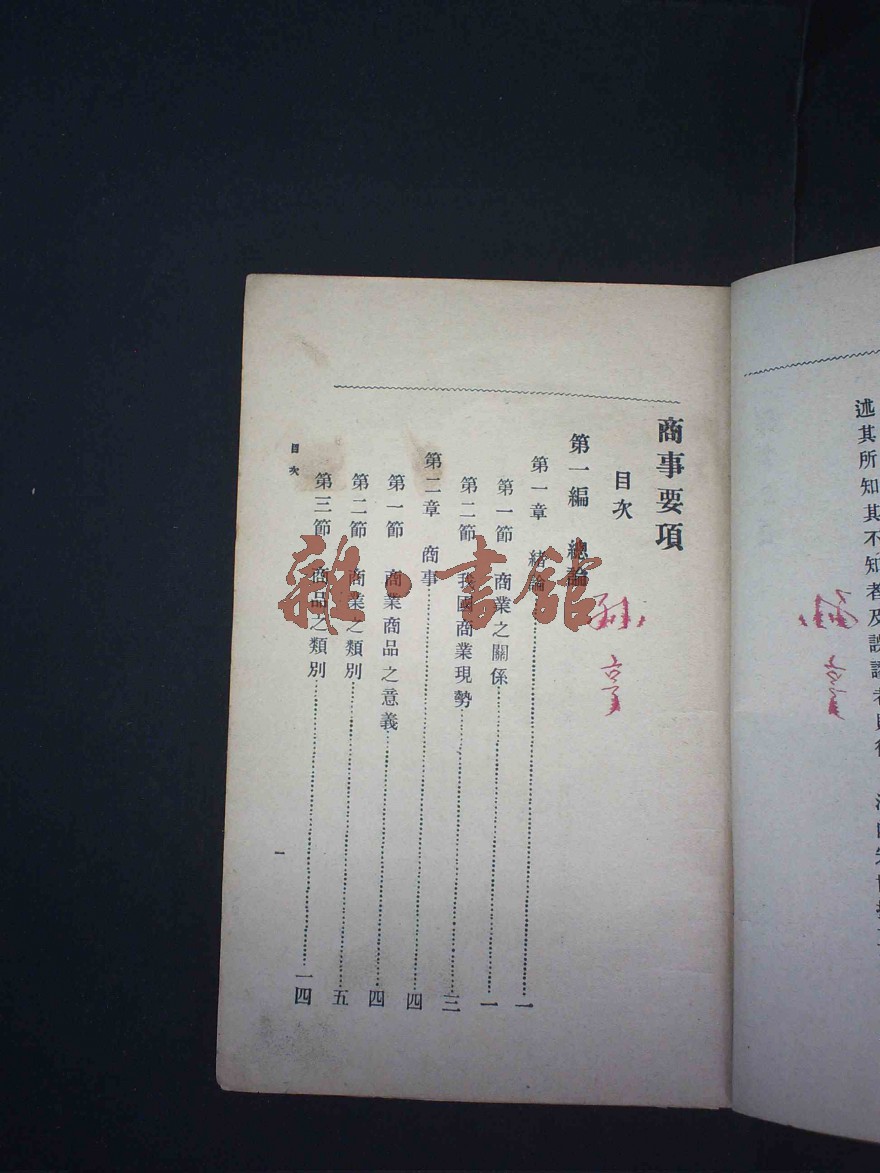 述其所知其不知者及誤謬者則後
商事要項
目次
第一編 總論
第一章 緒論……一
第一節 商業之關係……一
第二節 我國商業現勢……三
第二章 商事……四
第一節 商業商品之意義……四
第二節 商業之類別……五
第三節 商品之類別……一四
目次
一
雜·書館